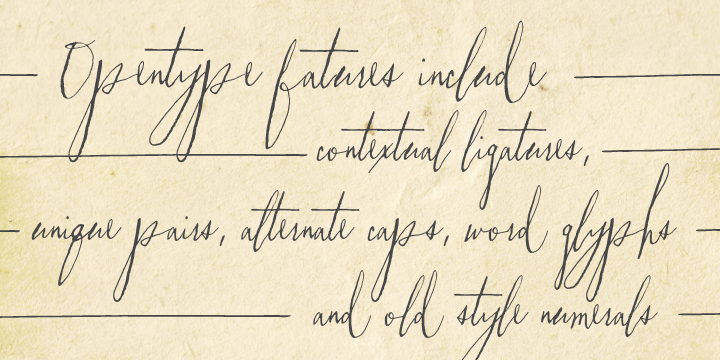 Opentype fatures include
contextual ligatures,
unique pairs, alternate caps, word glyphs
and old style numerals